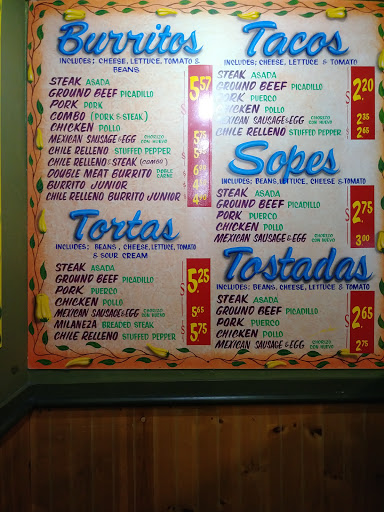 Burritos
INCLUDES: CHEESE, LETTUCE, TOMATO &
BEANS
STEAK ASADA
GROUND BEEF PICADILLO
PORK PORK
COMBO (PORK & STEAK)
CHICKEN POLLO
MEXICAN SAUSAGE & EGG CHORIZO CON HUEVO
CHILE RELLENO STUFFED PEPPER
CHILE RELLENO & STEAK (COMBO)
DOUBLE MEAT BURRITO DOBLE CARNE
BURRITO JUNIOR
CHILE RELLENO BURRITO JUNIOR
5.57
5.75
Tortas
INCLUDES: BEANS, CHEESE, LETTUCE, TOMATO
& SOUR CREAM
STEAK ASADA
GROUND BEEF PICADILLO
PORK PUERCO
CHICKEN POLLO
MEXICAN SAUSAGE & EGG CHORIZO CON HUEVO
MILANEZA BREADED STEAK
CHILE RELLENO STUFFED PEPPER
$ 5.25
5.65
$ 5.75
Tacos
INCLUDES: CHEESE, LETTUCE & TOMATO
STEAK ASADA
GROUND BEEF PICADILLO
PORK PUERCO
CHICKEN POLLO
MEXICAN SAUSAGE & EGG CHORIZO CON HUEVO
CHILE RELLENO STUFFED PEPPER
$ 2.20
2.35
$ 2.65
Sopes
INCLUDES: BEANS, LETTUCE, CHEESE & TOMATO
STEAK ASADA
GROUND BEEF PICADILLO
PORK PUERCO
CHICKEN POLLO
MEXICAN SAUSAGE & EGG CHORIZO CON HUEVO
$ 2.75
3.00
Tostadas
INCLUDES: BEANS, CHEESE, LETTUCE & TOMATO
STEAK ASADA
GROUND BEEF PICADILLO
PORK PUERCO
CHICKEN POLLO
MEXICAN SAUSAGE & EGG CHORIZO CON HUEVO
$ 2.65
2.75